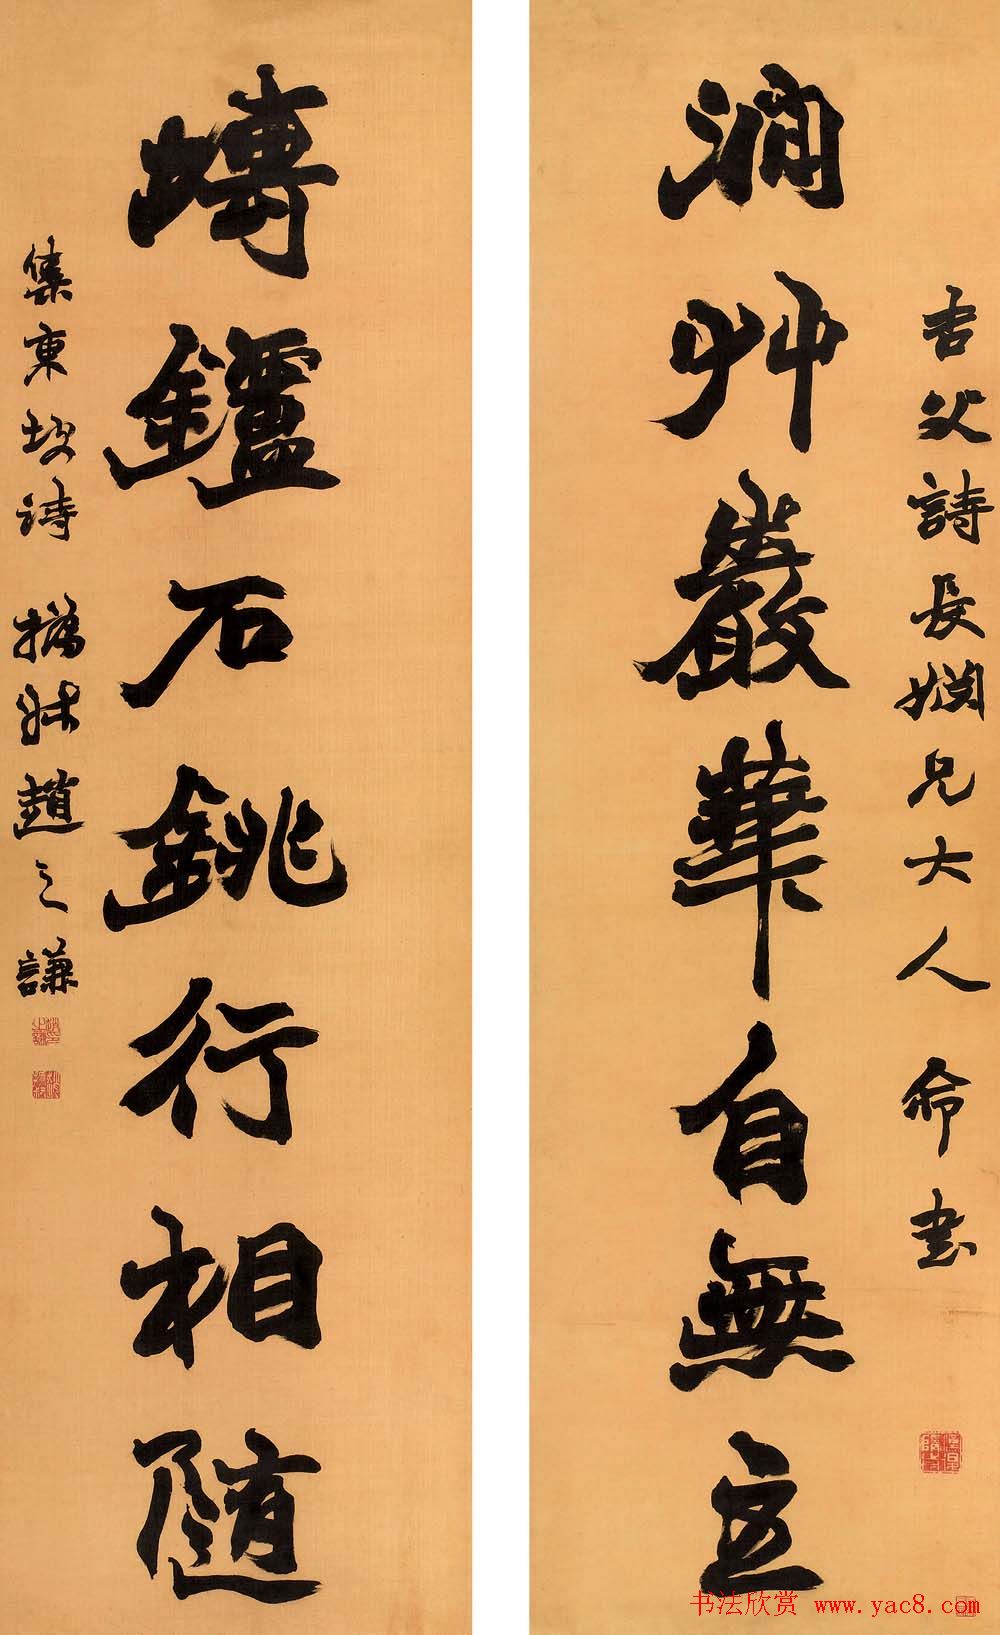 吉父詩長姻兄大人 命書
澗艸巖華自無主
塼鑪石銚行相隨
集東坡詩 撝叔趙之謙
书法欣赏 www.yac8.com